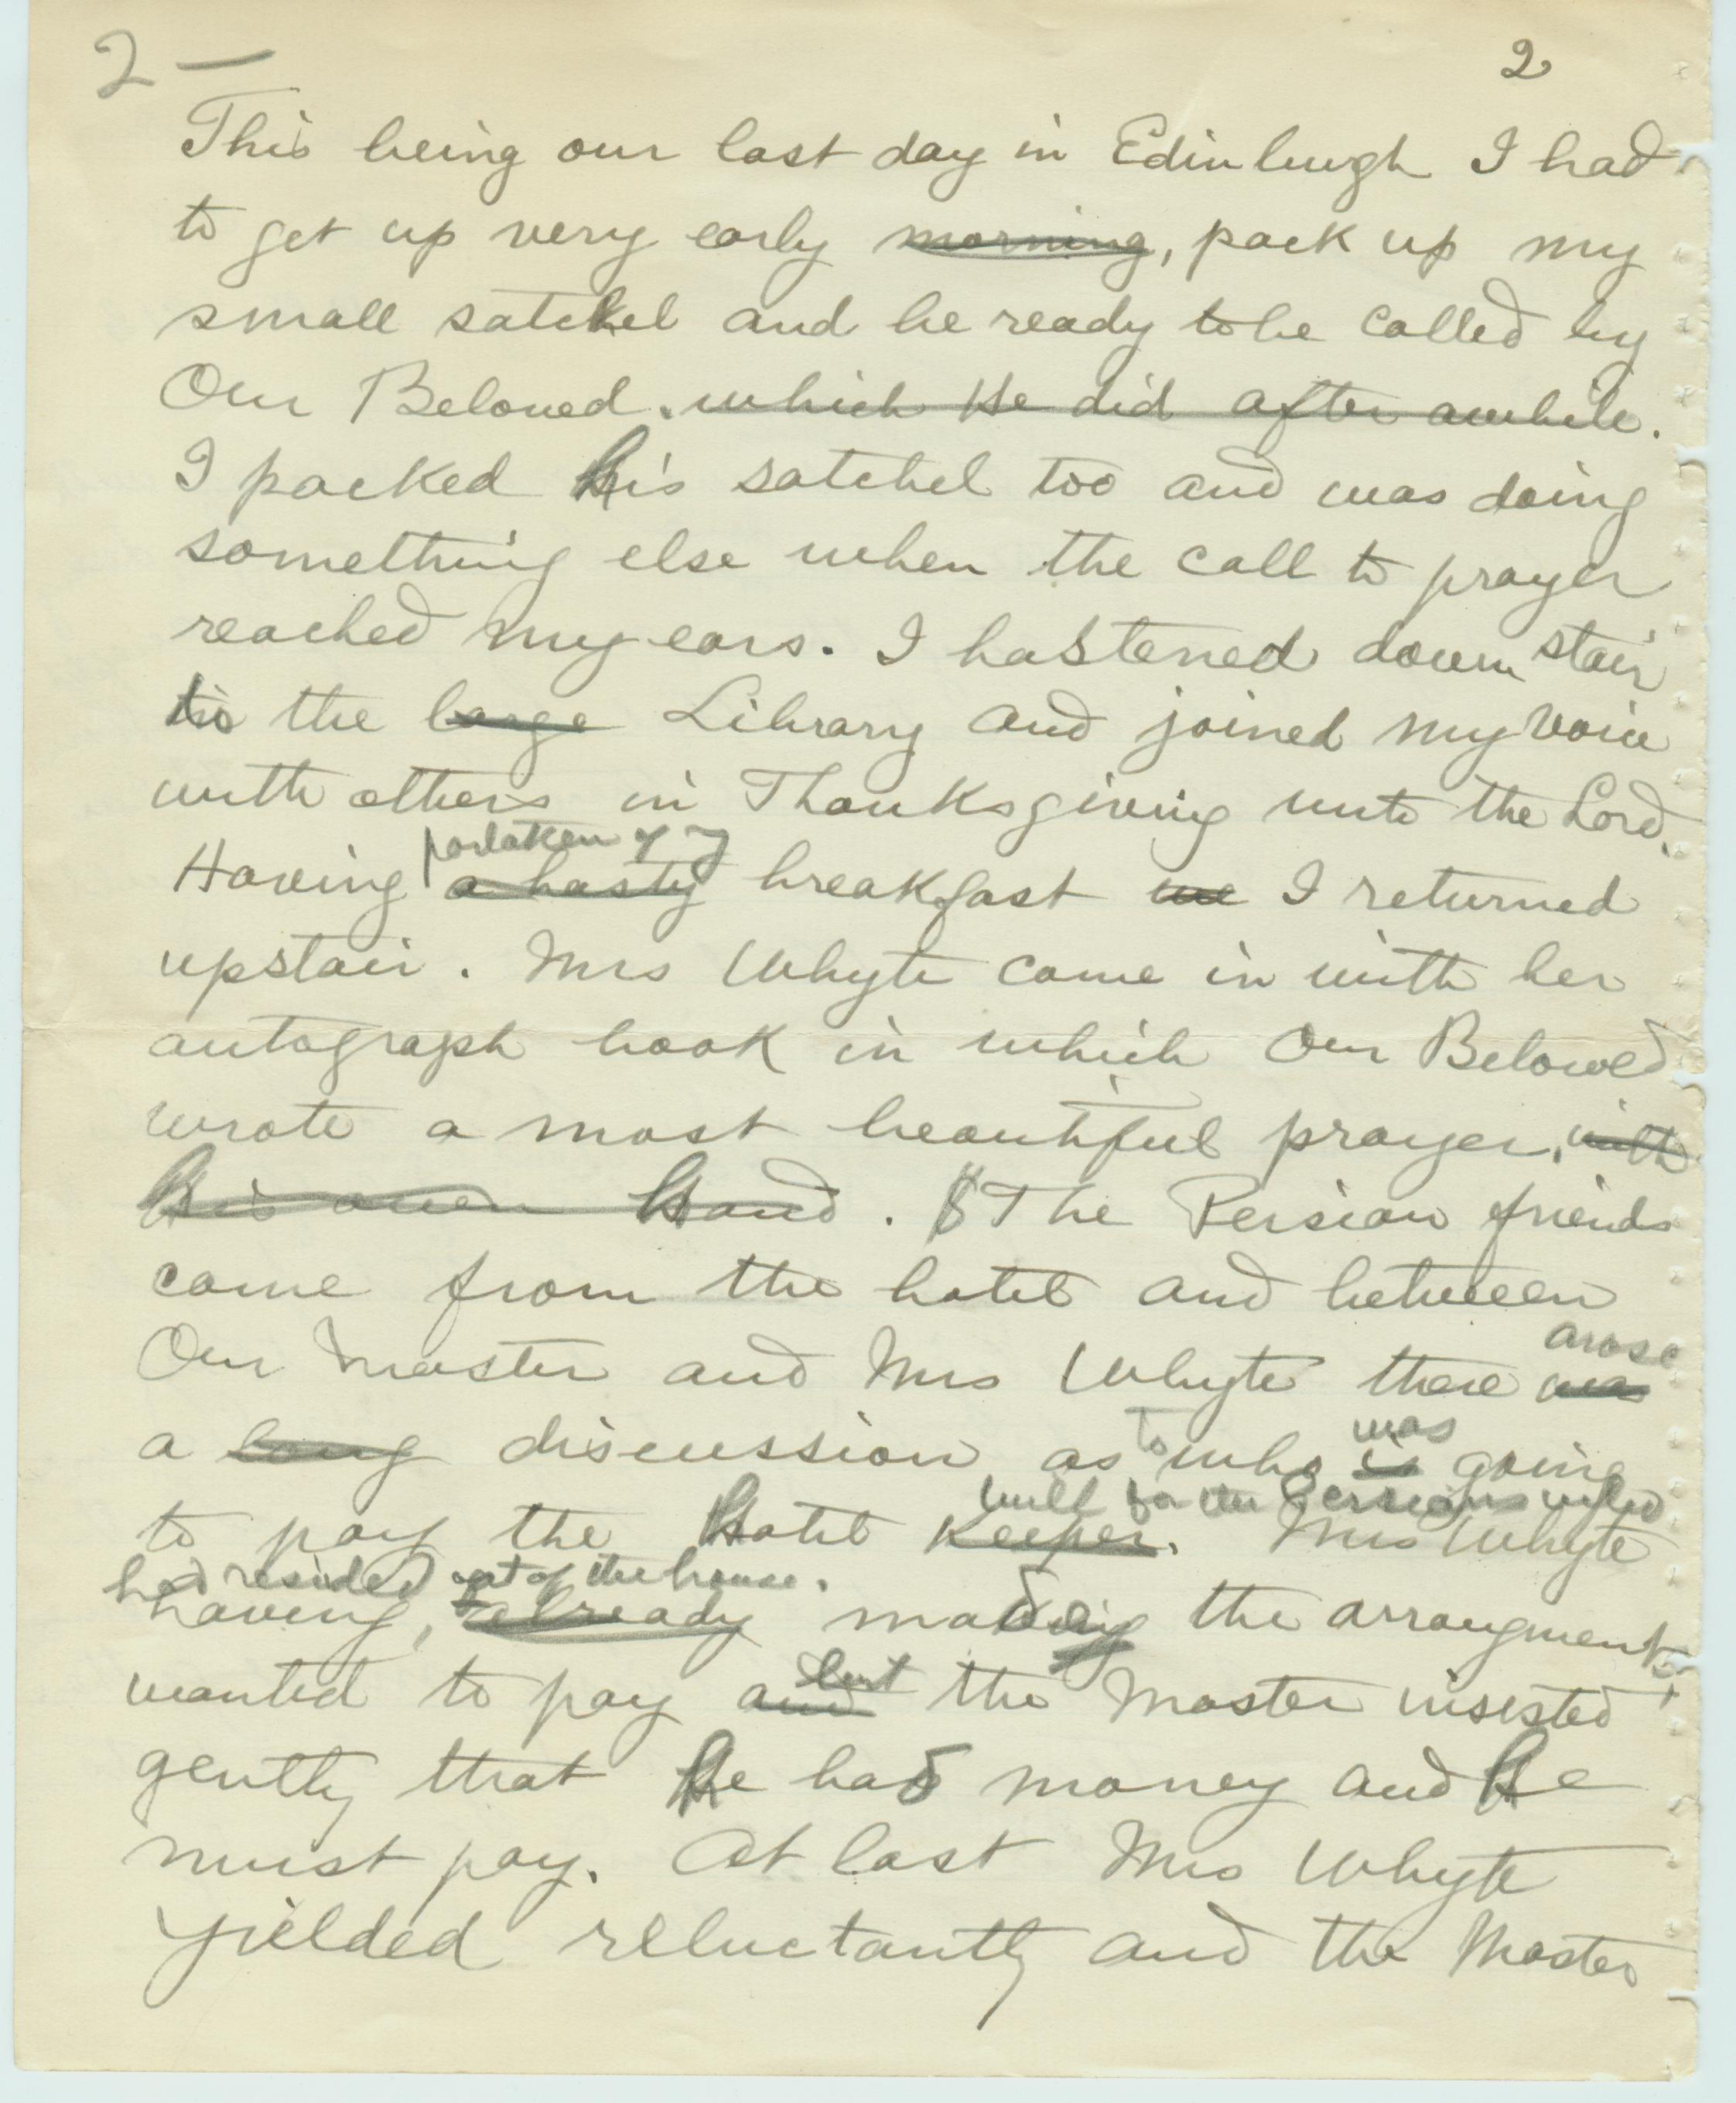 2 — 2
This being our last day in Edinburgh I had
to get up very early morning, pack up my
small satchel and be ready to be called by
Our Beloved. which He did after awhile.
I packed his satchel too and was doing
something else when the call to prayer
reached my ears. I hastened down stair
to the large Library and joined my voice
with others in Thanksgiving unto the Lord.
partaken of my
Having a hasty breakfast we I returned
upstair. Mrs Whyte came in with her
autograph book in which Our Beloved
wrote a most beautiful prayer, with
His own Hand. The Persian friends
came from the hotel and between
arose
Our Master and Mrs Whyte there was
to was
a long discussion as who is going
bill for the Persians who
to pay the Hotel Keeper. Mrs Whyte
had resided out of the house.
having, already made the arrangment,
but
wanted to pay and the Master insisted
gently that he had money and he
must pay. At last Mrs Whyte
yielded reluctantly and the Master